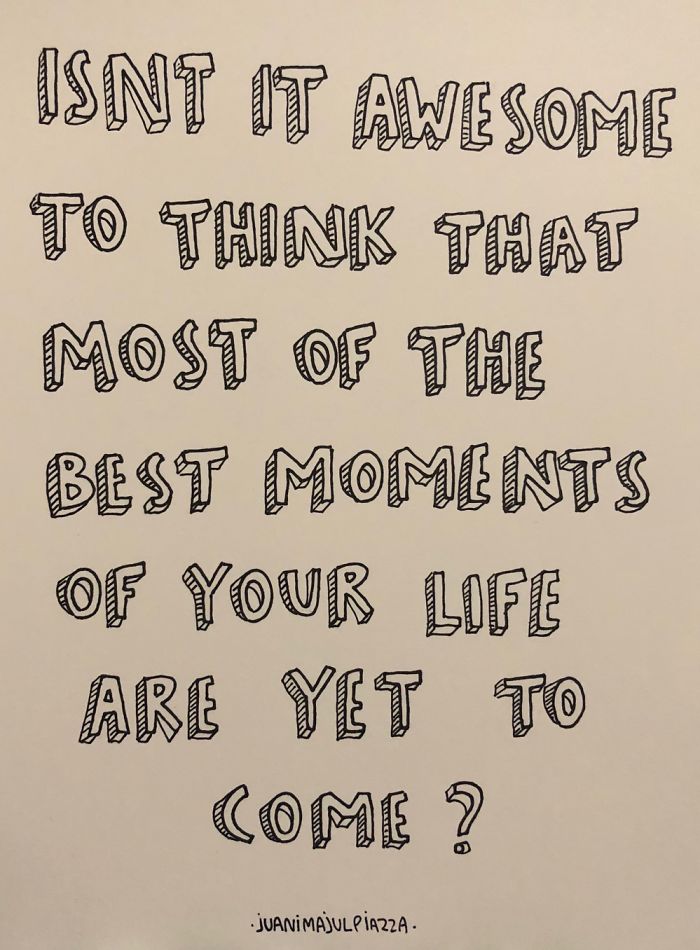 ISNT IT AWESOME
TO THINK THAT
MOST OF THE
BEST MOMENTS
OF YOUR LIFE
ARE YET TO
COME?
·JUANiMAJULPiAZZA·